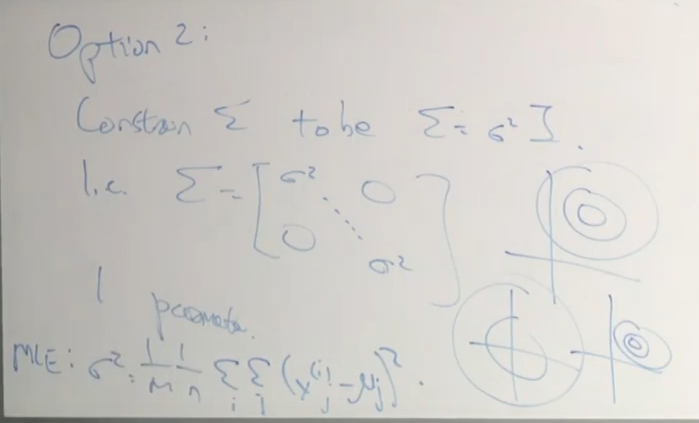 Option 2:
Constrain Σ to be Σ = σ² I.
I.e. Σ = [ σ² 0
0 σ² ]
1 parameter.
MLE: σ² = 1/m 1/n Σ_i Σ_j (x_j^(i) - μ_j)².